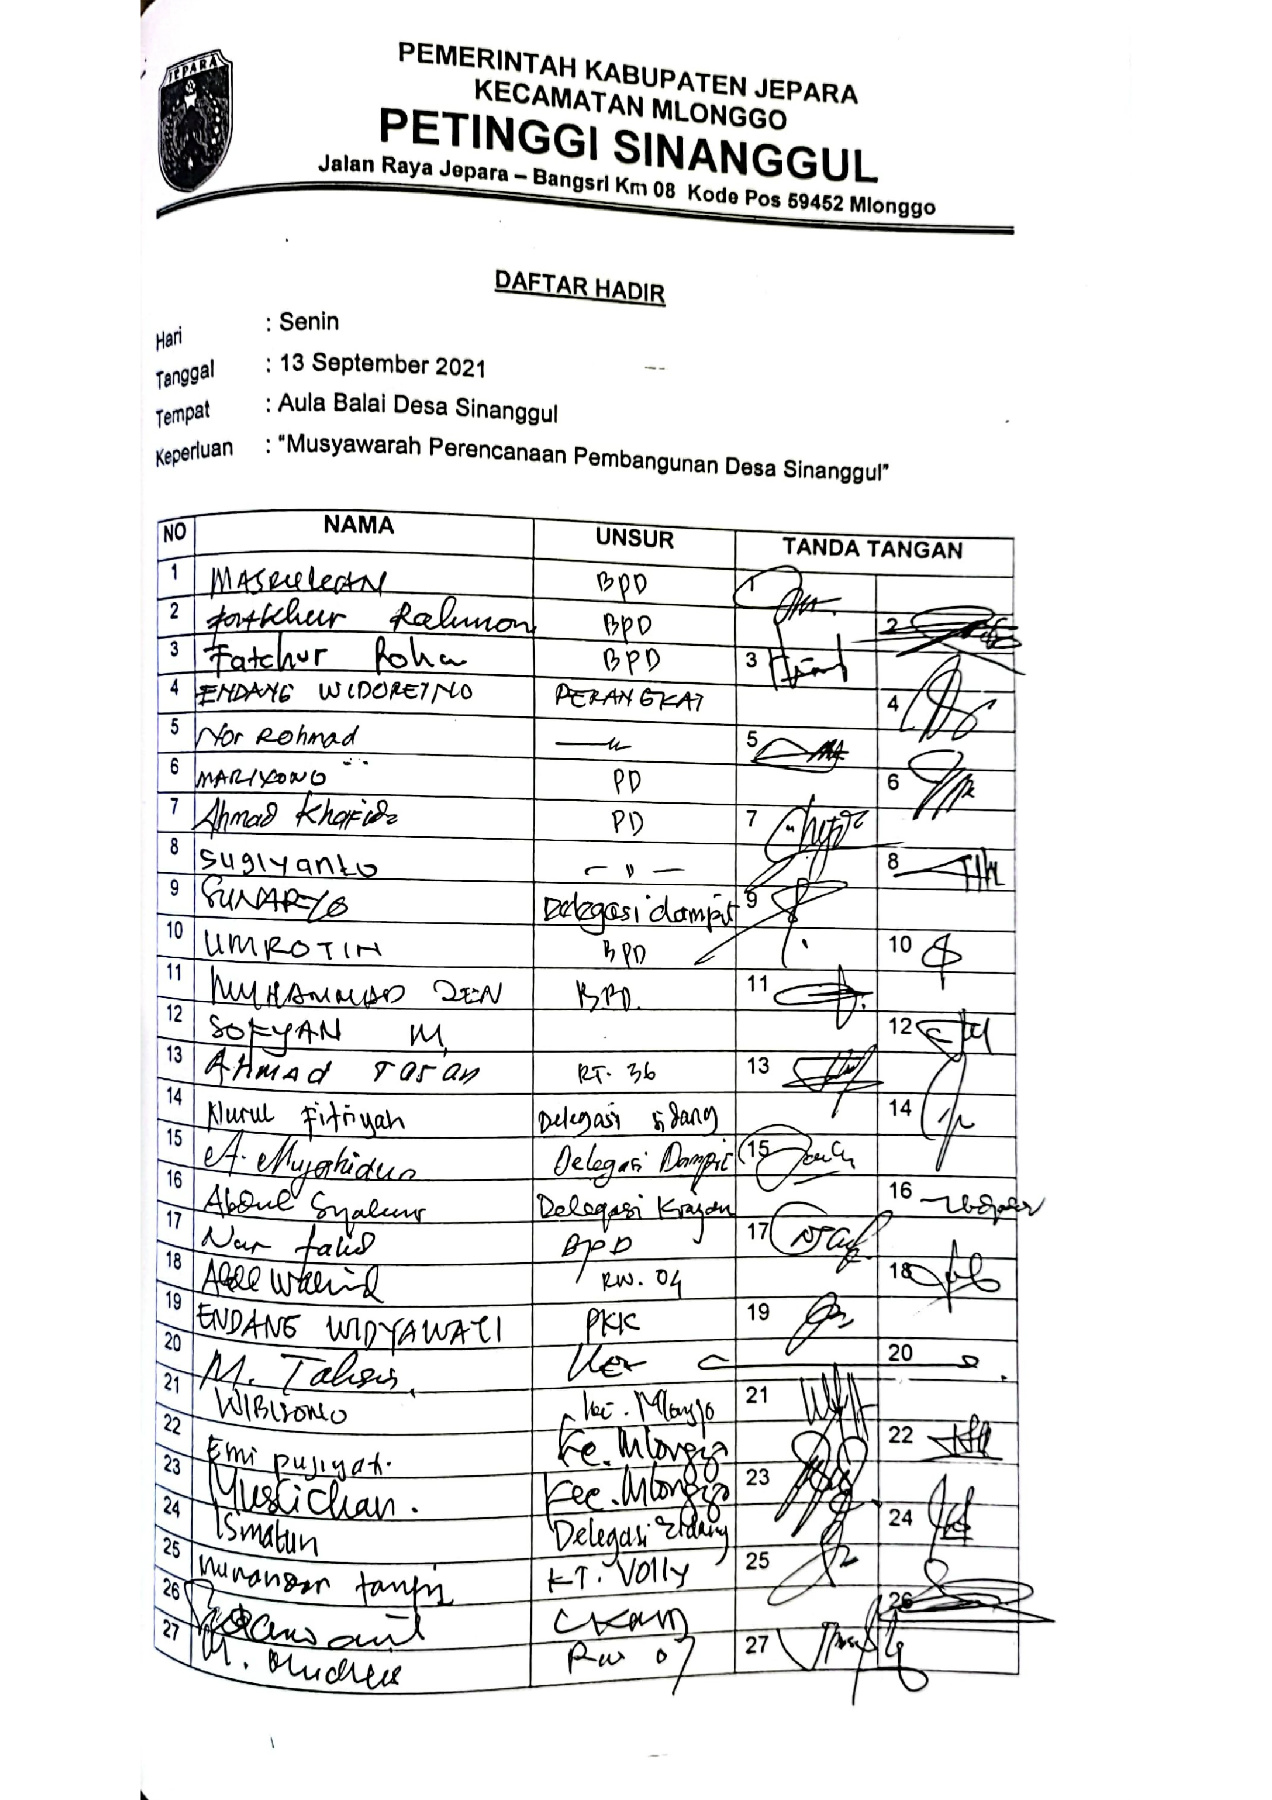 JEPARA
PEMERINTAH KABUPATEN JEPARA
KECAMATAN MLONGGO
PETINGGI SINANGGUL
Jalan Raya Jepara – Bangsri Km 08 Kode Pos 59452 Mlonggo
DAFTAR HADIR
Hari : Senin
Tanggal : 13 September 2021
Tempat : Aula Balai Desa Sinanggul
Keperluan : "Musyawarah Perencanaan Pembangunan Desa Sinanggul"
NO NAMA UNSUR TANDA TANGAN
1 BPD 1
2 Rahmon BPD 2
3 Fatchur Roha BPD 3
4 ENDANG WIDORETNO PERANGKAT 4
5 Nor Rohmad 5
6 MARIYONO PD 6
7 Ahmad Khafidz PD 7
8 Sugiyanto — " — 8
9 SUNARYO Delegasi dampit 9
10 UMROTIN BPD 10
11 MUHAMMAD ZEN BPD. 11
12 SOFYAN M. 12
13 AHMAD RT. 36 13
14 Nurul Fitriyah Delegasi sidang 14
15 A. Mujahidun Delegasi Dampit 15
16 Abdul Delegasi Krajan 16
17 Nur BPD 17
18 Abdl Wakhid RW. 04 18
19 ENDANG WIDYAWATI PKK 19
20 M. 20
21 WIBISONO Mlonggo 21
22 Emi pujiyati. Kec. Mlonggo 22
23 Muslichan. Kec. Mlonggo 23
24 Ismatun Delegasi sidang 24
25 KT. Volly 25
26 26
27 M. RW 07 27